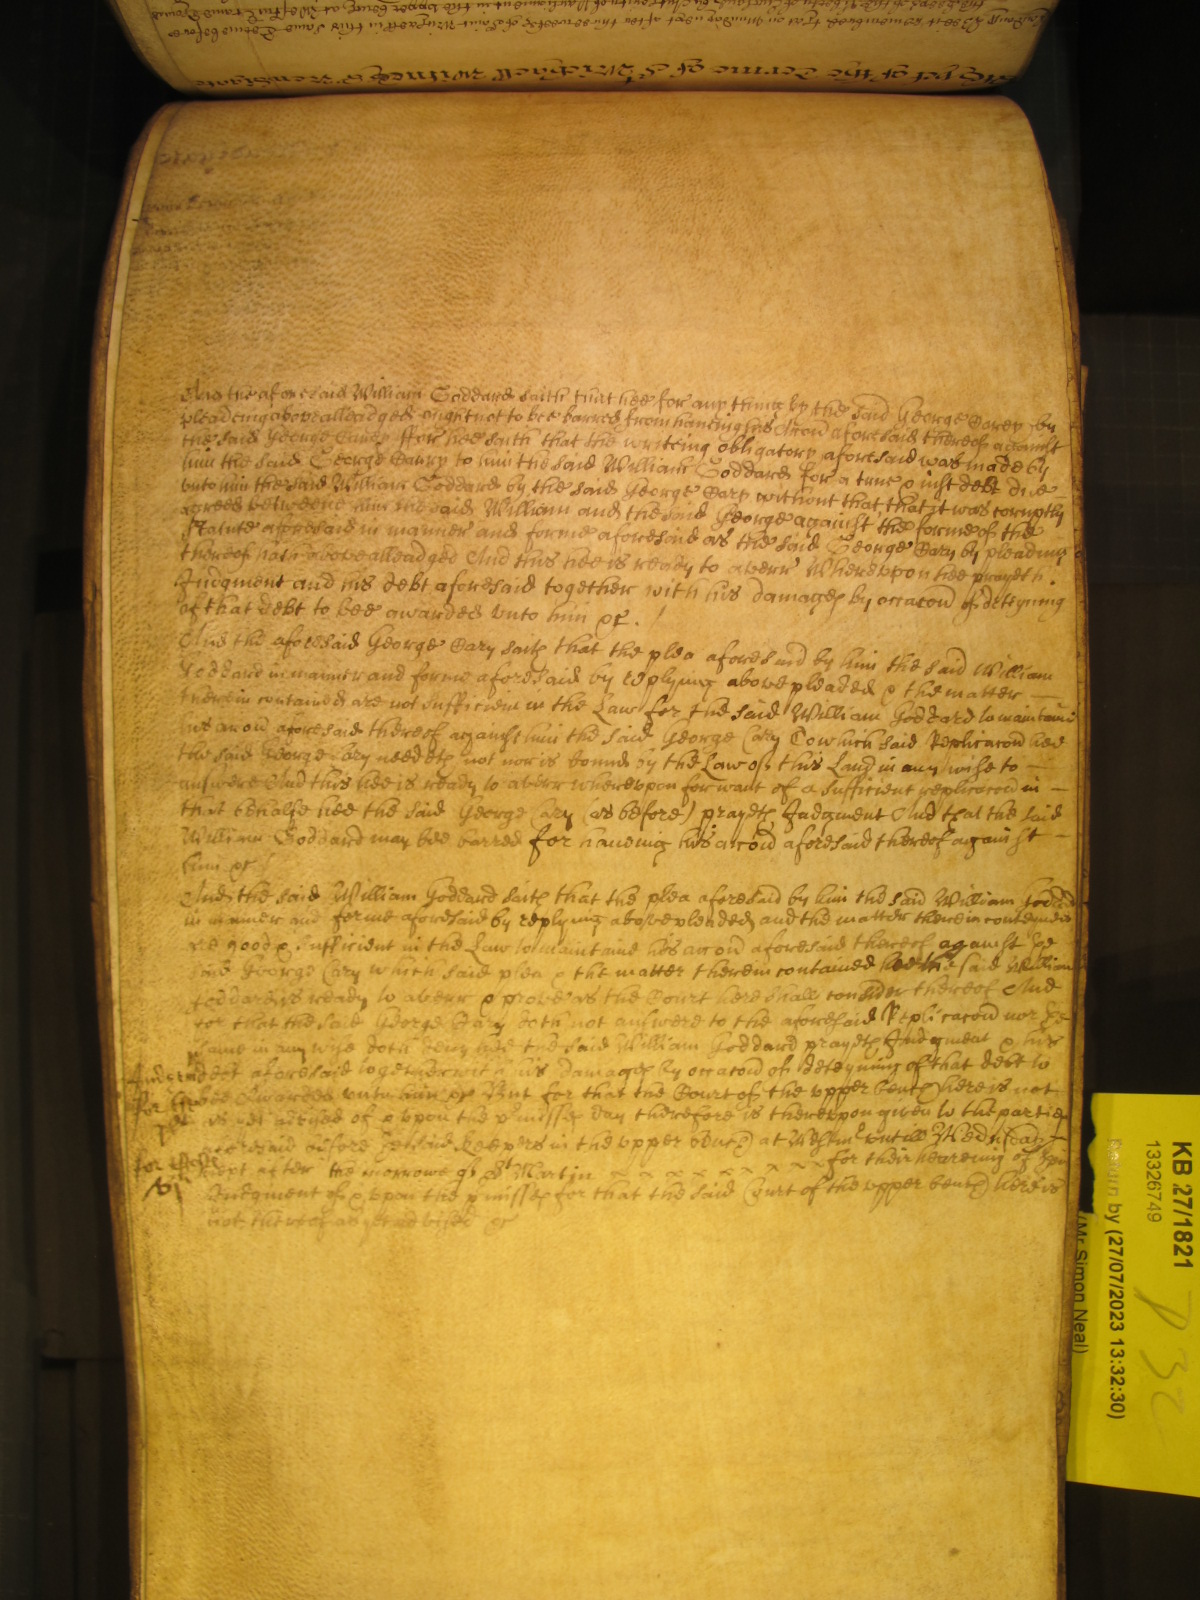 And the aforesaid William Goddard saith that hee for any thing by the said George Carey by
pleading above alleadged ought not to bee barred from haveing his accon aforesaid thereof against
the said George Carey ffor hee saith that the writeing obligatory aforesaid was made by
him the said George Carey to him the said William Goddard for a true & iust debt due
unto him the said William Goddard by the said George Cary without that that it was corruptly
agreed betweene him the said William and the said George against the forme of the
Statute aforesaid in manner and forme aforesaid as the said George Cary by pleading
thereof hath above alleadged And this hee is ready to averr Whereupon hee prayeth
Judgment and his debt aforesaid together with his damages by occacon of deteyning
of that debt to bee awarded unto him &c.
And the aforesaid George Cary saith that the plea aforesaid by him the said William
Goddard in manner and forme aforesaid by replying above pleaded & the matter
therein contained are not sufficient in the Law for the said William Goddard to maintaine
his accon aforesaid thereof against him the said George Cary To which said Replicacon hee
the said George Cary needeth not nor is bound by the Law of this Land in any wise to
answere And this hee is ready to averr whereupon for want of a sufficient replicacon in
that behalfe hee the said George Cary (as before) prayeth Judgment And that the said
William Goddard may bee barred for haueing his accon aforesaid thereof against
him &c
And the said William Goddard saith that the plea aforesaid by him the said William Goddard
in manner and forme aforesaid by replying above pleaded and the matter therein contained
are good & sufficient in the Law to maintaine his accon aforesaid thereof against
said George Cary which said plea & the matter therein contained hee the said William
Goddard is ready to averr & prove as the Court here shall consider thereof And
for that the said George Cary doth not answere to the aforesaid Replicacon nor
same in any wise doth deny hee the said William Goddard prayeth Judgment & his
debt aforesaid together with his damages by occacon of deteyning of that debt to
bee awarded unto him &c But for that the Court of the upper bench here is not
as yet advised of & upon the pmisses day therefore is thereupon given to the parties
aforesaid before Keepers in the upper bench at Westmr untill Wednesday
next after the morrowe of St Martin for their heareing of
Judgment of & upon the pmisses for that the said Court of the upper bench here is
not thereof as yet advised &c
KB 27/1821
13326749
by (27/07/2023 13:32:30)
(Mr Simon Neal)